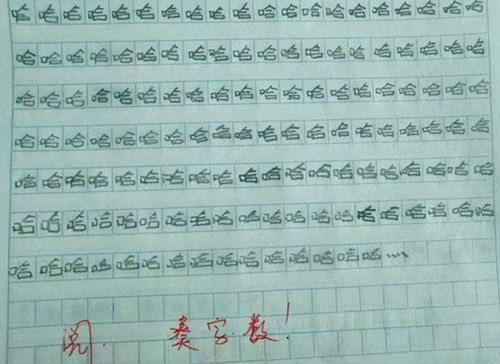 哈哈哈哈哈哈哈哈哈哈哈哈哈哈哈哈哈哈哈哈
哈哈哈哈哈哈哈哈哈哈哈哈哈哈哈哈哈哈哈哈
哈哈哈哈哈哈哈哈哈哈哈哈哈哈哈哈哈哈哈哈
哈哈哈哈哈哈哈哈哈哈哈哈哈哈哈哈哈哈哈哈
哈哈哈哈哈哈哈哈哈哈哈哈哈哈哈哈哈哈哈哈
哈哈哈哈哈哈哈哈哈哈哈哈哈哈哈哈哈哈哈哈
哈哈哈哈哈哈哈哈哈哈哈哈哈哈哈……
阅. 凑字数!